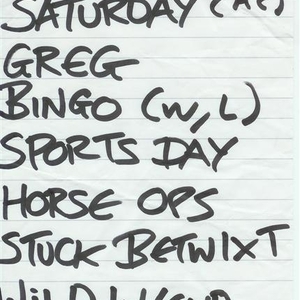 SATURDAY (AC)
GREG
BINGO (W, L)
SPORTS DAY
HORSE OPS
STUCK BETWIXT
WILD